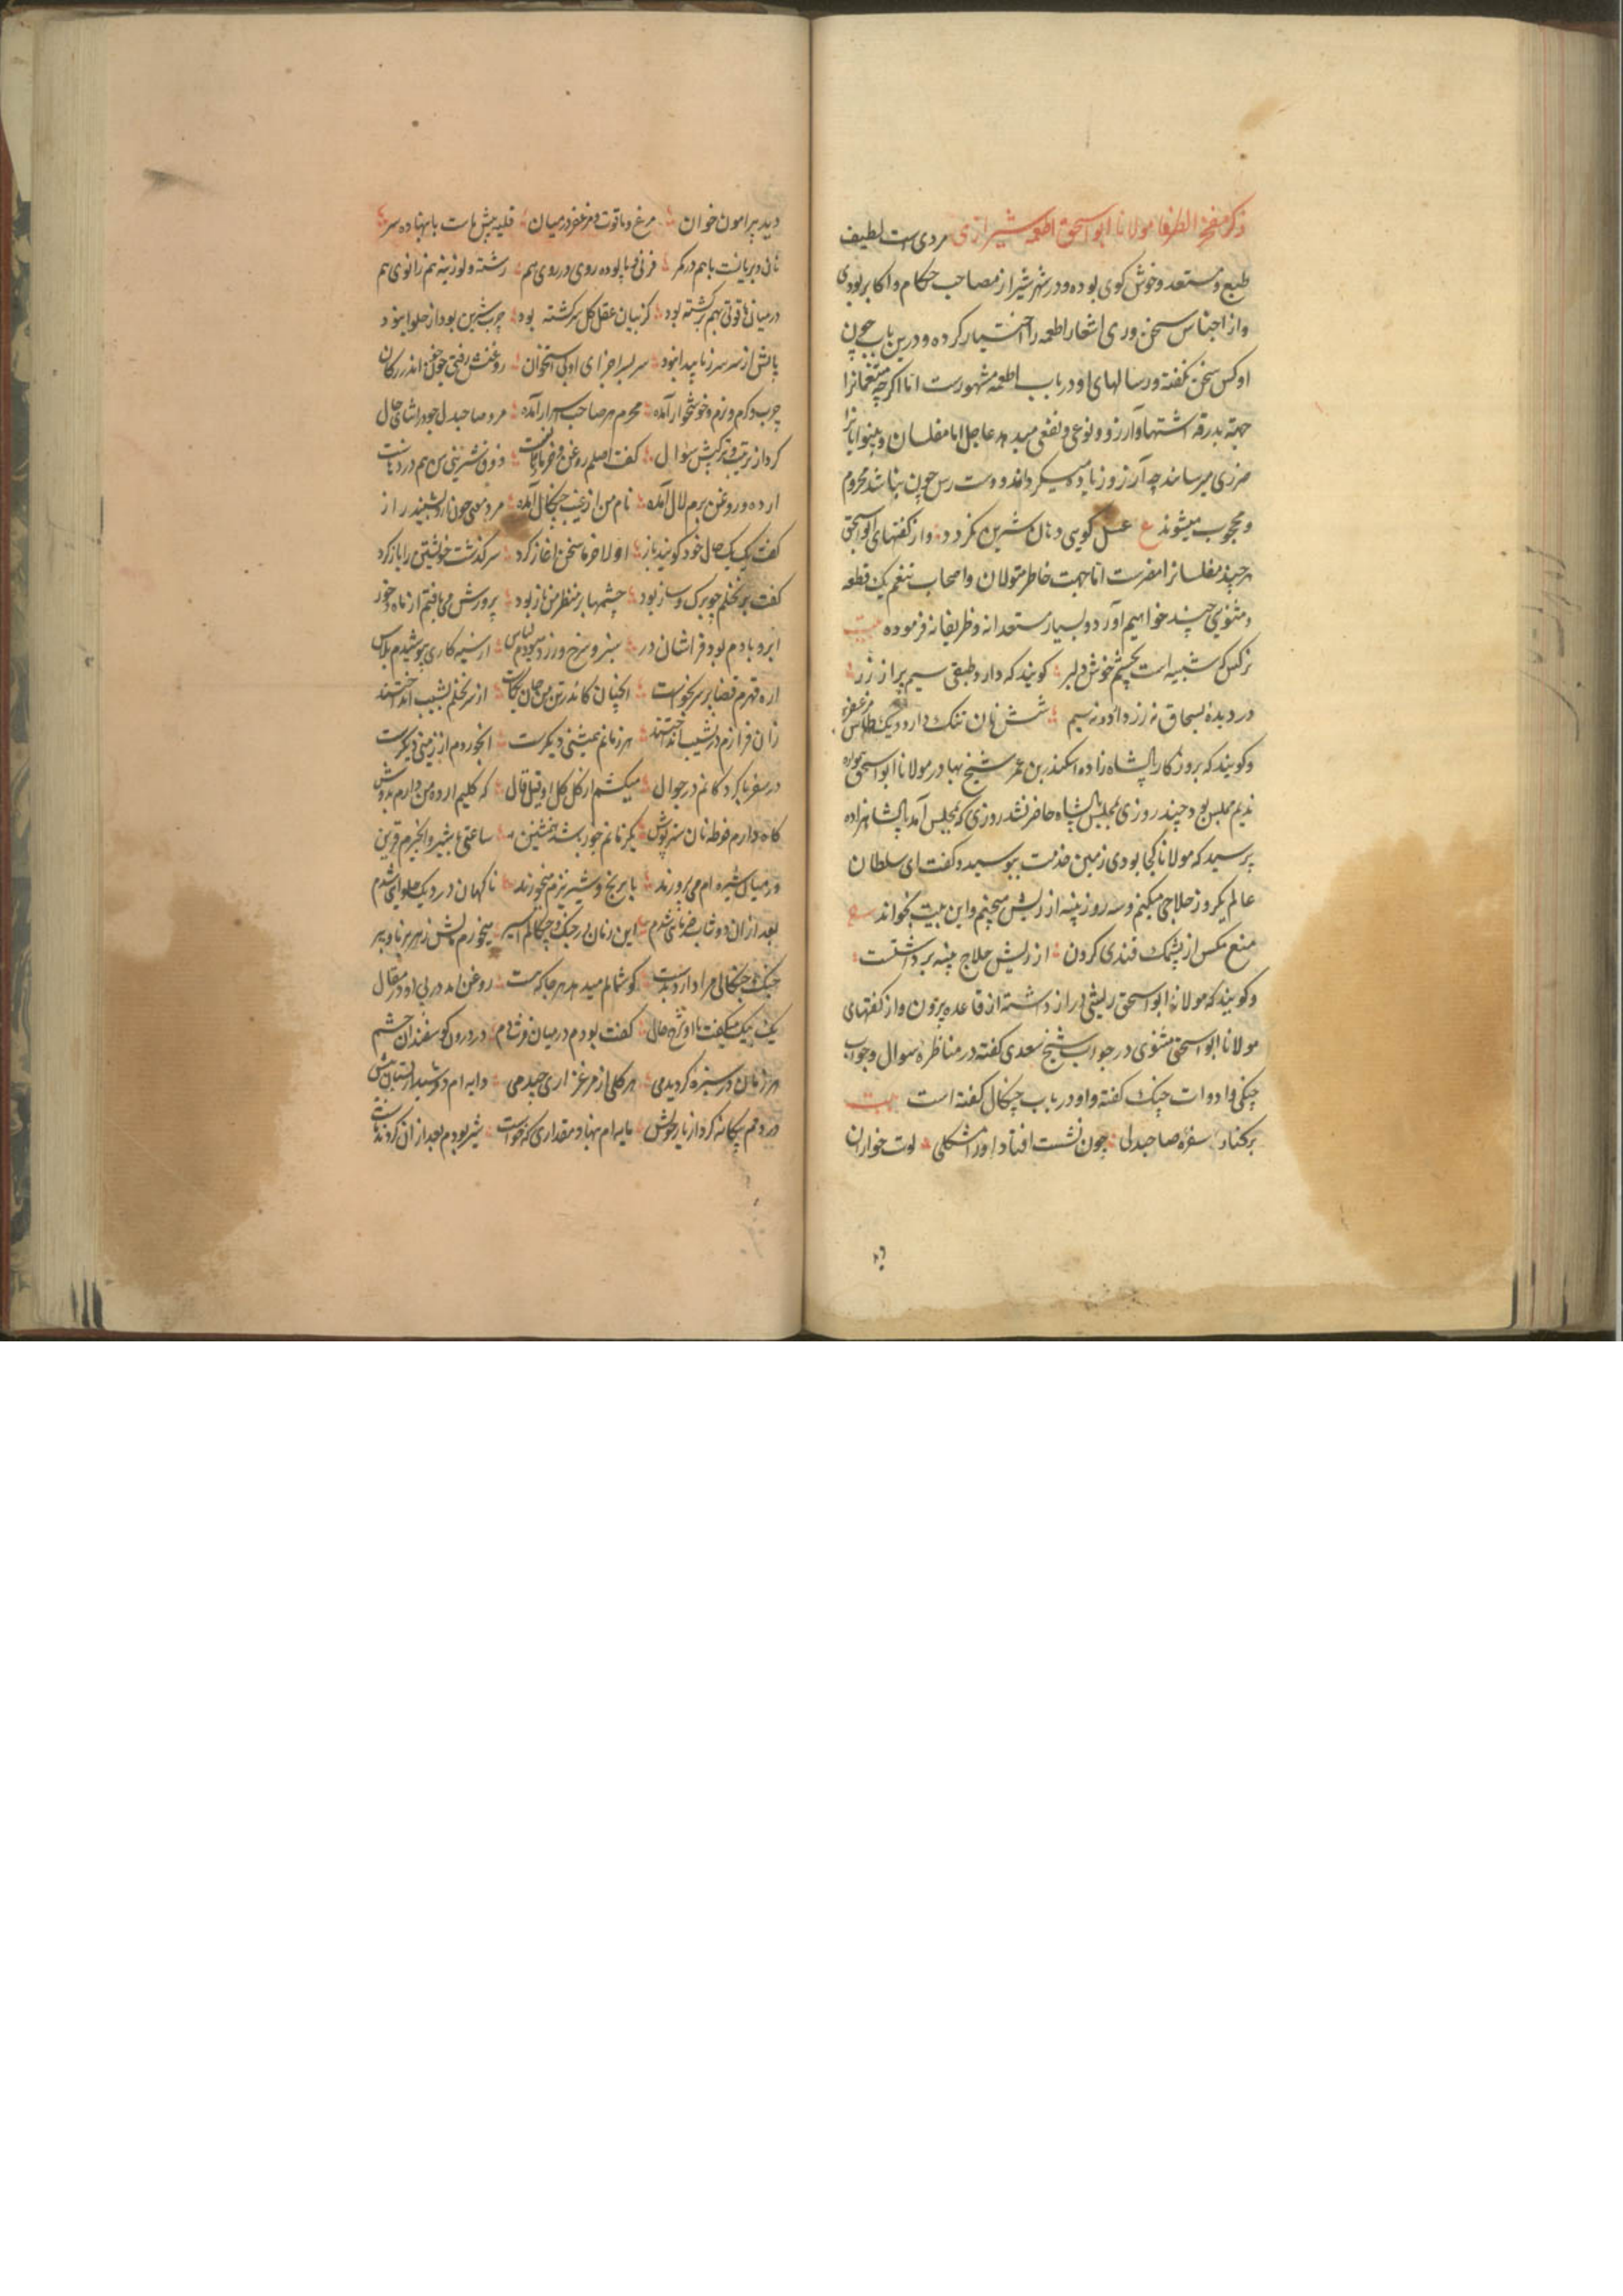 ذکر مفخر الظرفا مولانا ابو اسحق اطعمه شیرازی مردی است لطیف
طبع و مستعد و خوش کوی بوده و در شهر شیراز مصاحب حکام و اکابر بودی
و از اجناس سخن وری اشعار اطعمه را اختیار کرده و درین باب چون
او کس سخن نکفته و رسالهای او در باب اطعمه مشهورست اما اکرچه متنعمانرا
جهة بدرقه اشتها و آرزو و نوعی و نفعی میدهد عاجل اما مفلسان و بینوایانرا
ضرری میرساند چه آرزو زیاده میکرداند و دست رس چون نباشد محروم
و محجوب میشوند ع عسل کویی دهان شیرین نکردد و از کفتهای ابو اسحق
هرچند مفلسانرا مضرست اما جهت خاطر متولان و اصحاب تنعم یک قطعه
و مثنویی چند خواهیم آورد و بسیار مستعدانه و ظریفانه فرموده بیت
نرکس که شبیه است بچشم خوش دلبر کویند که دارد طبقی سیم بر از زر
در دیده بسحاق نه زر دارد و نه سیم شش نان تنک دارد و یک طاس مزعفر
و کویند که بروزکار پادشاه زاده اسکندر بن عمر شیخ بهادر مولانا ابو اسحق همواره
ندیم مجلس بود چند روزی بمجلس پادشاه حاضر نشد روزی که بمجلس آمد پادشاهزاده
پرسید که مولانا کجا بودی زمین خدمت ببوسید و کفت ای سلطان
عالم یکروز حلاجی میکنم و سه روز پنبه از ریش میچینم و این بیت بخواند ع
منع مکس از پشمک قندی کردن از ریش حلاج پنبه برداشتست
و کویند که مولانا ابو اسحق ریشی دراز داشته از قاعده بیرون و از کفتهای
مولانا ابو اسحق مثنوی در جواب شیخ سعدی کفته در مناظره سوال و جواب
چنکی و ادوات چنک کفته و او در باب چنکال کفته است بیت
بر کنار سفره صاحبدلی چون نشست افتاد او را مشکلی لوت خواران
دید پیرامون خوان مرغ و یاقوت و مزعفر در میان قلیه پیش ماست بنهاده سر
نان و بریانست باهم در کمر فرنی و پالوده روی در روی هم رشته و لوزینه هم زانوی هم
در میان قوتی بهم برکشته بود کز بیان عقل کل سرکشته بود چرب شیرین بود از حلوا نبود
پایش از سر سر ز پا پیدا نبود سر بسر اجزای او بی استخوان روغنش رفتی چو خون اندر رکان
چرب و کرم و نرم و خوشخوار آمده محرم هر صاحب اسرار آمده مرد صاحبدل چو در اثنای حال
کرد از ترتیب و ترکیبش سوال کفت اصلم روغن و خرما و نانست ذوق شیرینی من هم در دهانست
ارده و روغن برم لال آمده نام من از غیب چنکال آمده مرد معنی چون ازو بشنید راز
کفت یک یک حال خود کویند باز اولا خرما سخن آغاز کرد سرکذشت خویشتن را باز کرد
کفت بر نخلم چو برک و ساز بود چشمها بر منظر من باز بود پرورش می‌یافتم از ماه و خور
ابر و بادم بود فراشان در سبز و سرخ و زرد پوشیدم لباس از سیه کاری بپوشیدم پلاس
اره قهرم قضا بر سر بخواست آنچنان کاندر تن من جان بکاست از سر نخلم بشیب انداختند
زان فرازم در شیب انداختند هر زمانم عیشی دیکرست انجوردم از زمینی دیکرست
در سفر با کردکانم در جوال میکشم از کل کل او قیل قال که کلیم ارده من دارم بدوش
کاه دارم فوطه نان سترپوش یکزمانم جوز باشد همنشین ساعتی با شیر و انجیرم قرین
در میان شیره‌ام می‌پرورند با برنج و شیر نیزم میخورند ناکهان در دیک حلوایی شدم
بعد از ان دوشاب خرمایی شدم این زمان در چنک چنکالم اسیر میخورم مالش ز هر برنا و پیر
چنک چنکالی مرا دارد بدست کوشمالم میدهد هرجا که هست روغن آمد در پی او در مقال
یک بیک میکفت با او شرح حال کفت بودم در میان فرث و دم در درون کوسفندان حشم
هر زمان در سبزه کردیدمی هر کلی از مرغزاری چیدمی دایه‌ام دوشید از پستان میش
در دم بیکانه کرد از یار خویش مایه‌ام بنهاد مقداری که خواست شیر بودم بعد از ان کردند ماست